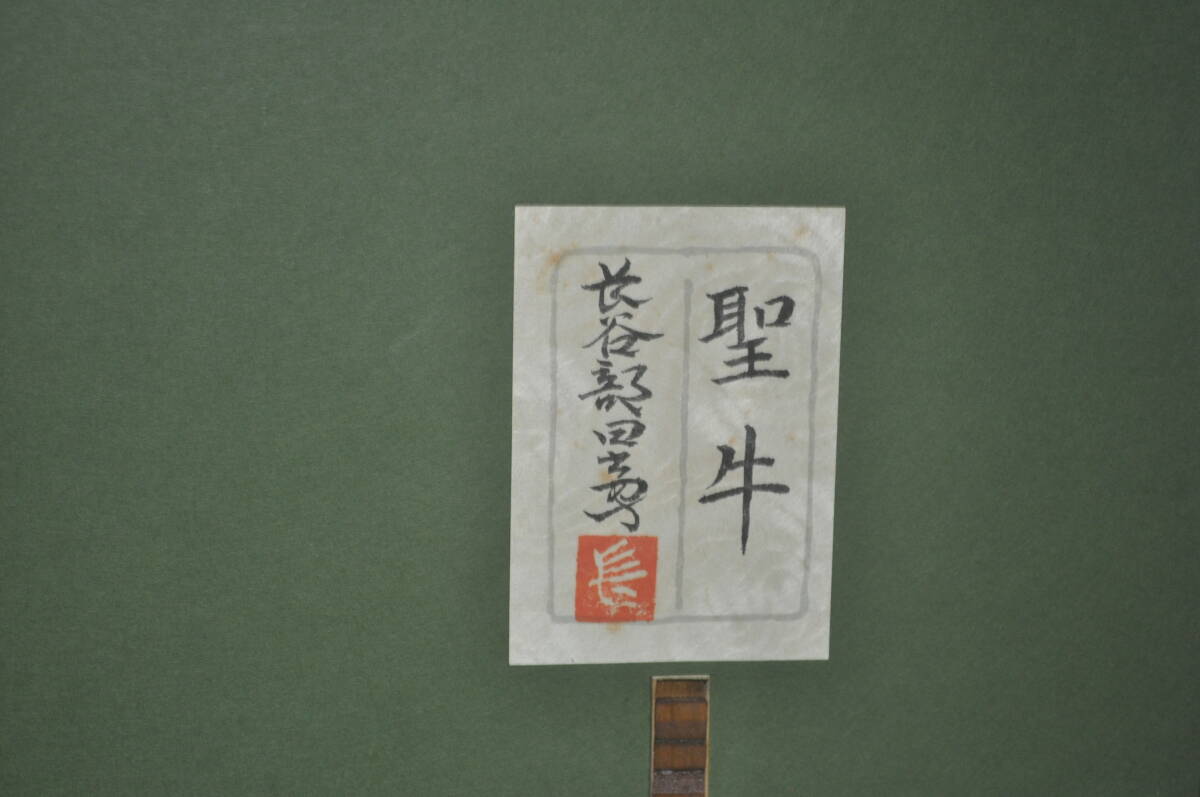 聖牛
長谷部日出男
長